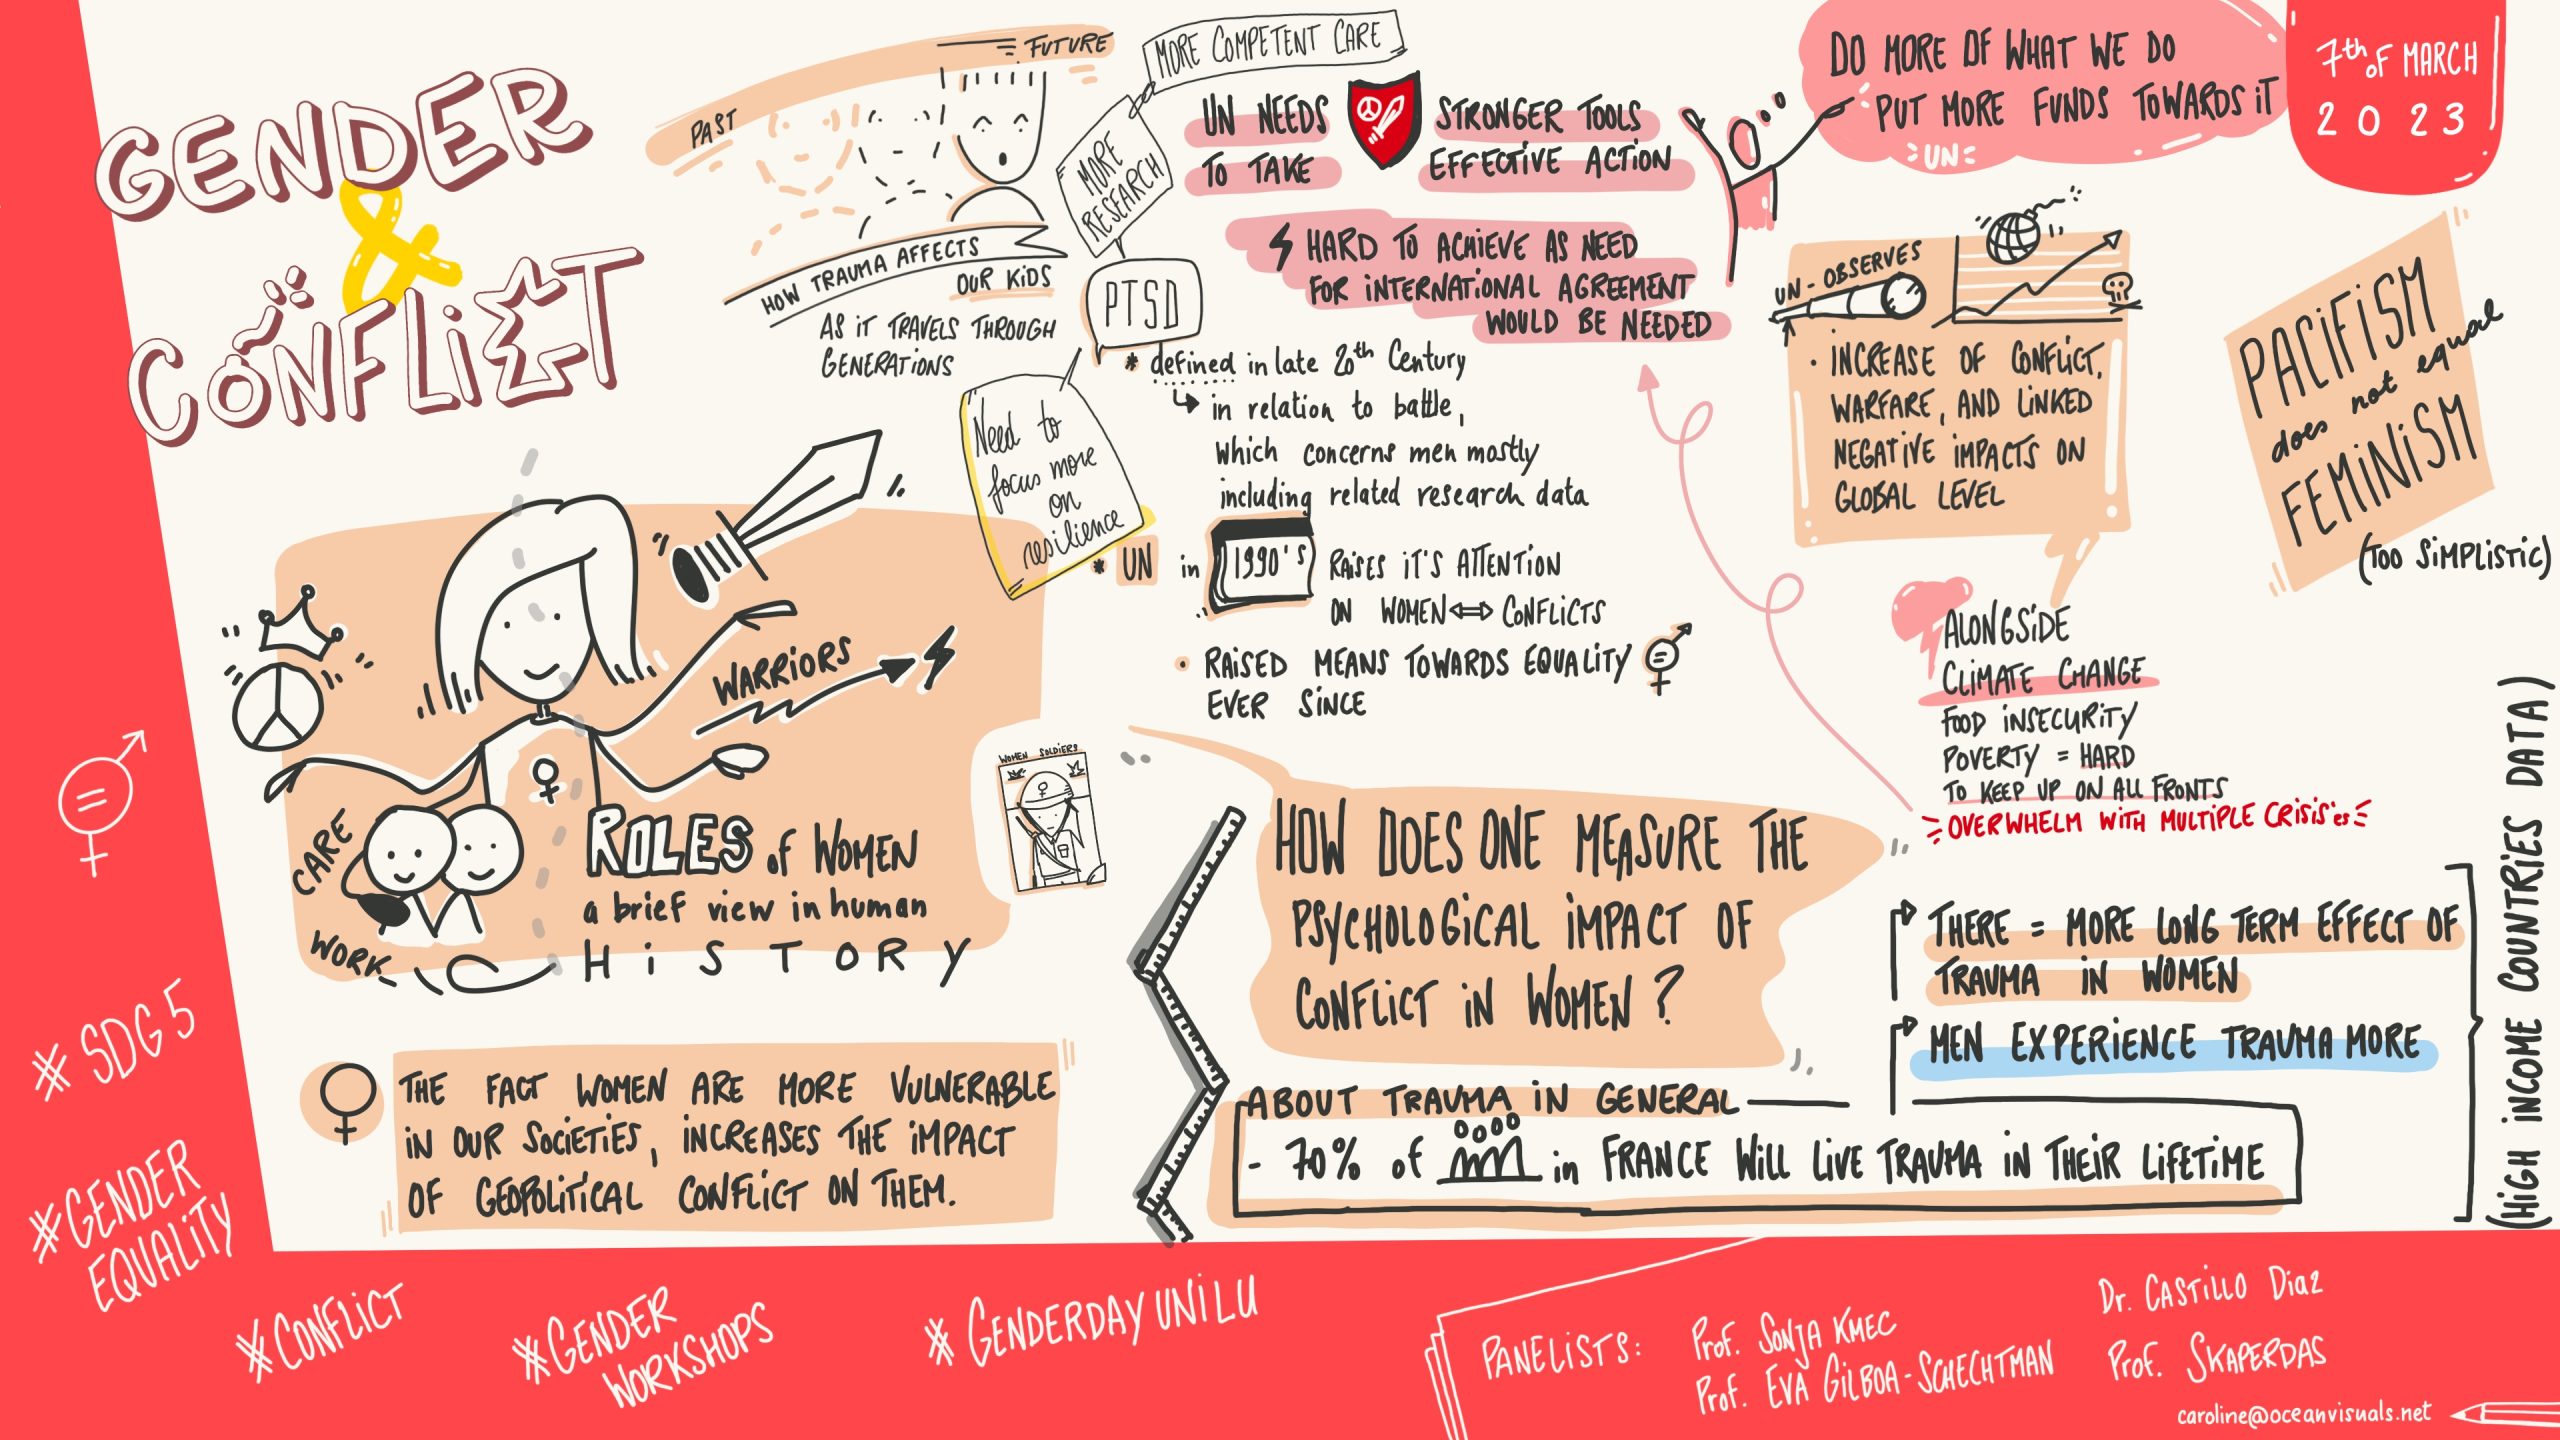 GENDER
&
CONFLICT
PAST
FUTURE
HOW TRAUMA AFFECTS
OUR KiDS
AS iT TRAVELS THROUGH
GENERATIONS
MORE COMPETENT CARE
MORE
RESEARCH
PTSD
Need to
focus more
on
resilience
* defined in late 20th Century
in relation to battle,
which concerns men mostly
including related research data
* UN in 1990's RAISES iT'S ATTENTION
ON WOMEN CONFLICTS
• RAISED MEANS TOWARDS EQUALITY
EVER SINCE
UN NEEDS STRONGER TOOLS
TO TAKE EFFECTIVE ACTION
HARD TO ACHIEVE AS NEED
FOR INTERNATIONAL AGREEMENT
WOULD BE NEEDED
DO MORE OF WHAT WE DO
PUT MORE FUNDS TOWARDS iT
UN
7th OF MARCH
2023
UN-OBSERVES
• INCREASE OF CONFLICT,
WARFARE, AND LINKED
NEGATIVE IMPACTS ON
GLOBAL LEVEL
PACIFISM
does not equal
FEMINISM
(TOO SIMPLISTIC)
ALONGSIDE
CLIMATE CHANGE
FOOD INSECURITY
POVERTY = HARD
TO KEEP UP ON ALL FRONTS
OVERWHELM WITH MULTIPLE CRISIS'es
WARRIORS
CARE
WORK
ROLES of WOMEN
a brief view in human
HiSTORY
WOMEN SOLDIERS
THE FACT WOMEN ARE MORE VULNERABLE
IN OUR SOCIETIES, INCREASES THE IMPACT
OF GEOPOLITICAL CONFLICT ON THEM.
HOW DOES ONE MEASURE THE
PSYCHOLOGICAL IMPACT OF
CONFLICT IN WOMEN?
ABOUT TRAUMA IN GENERAL
- 70% of in FRANCE WILL LIVE TRAUMA IN THEIR LIFETIME
THERE = MORE LONG TERM EFFECT OF
TRAUMA IN WOMEN
MEN EXPERIENCE TRAUMA MORE
(HIGH INCOME COUNTRIES DATA)
# SDG 5
#GENDER
EQUALITY
#CONFLICT
#GENDER
WORKSHOPS
# GENDERDAY UNILU
PANELISTS:
Prof. SONJA KMEC
Prof. EVA GILBOA-SCHECHTMAN
Dr. CASTILLO Diaz
Prof. SKAPERDAS
caroline@oceanvisuals.net